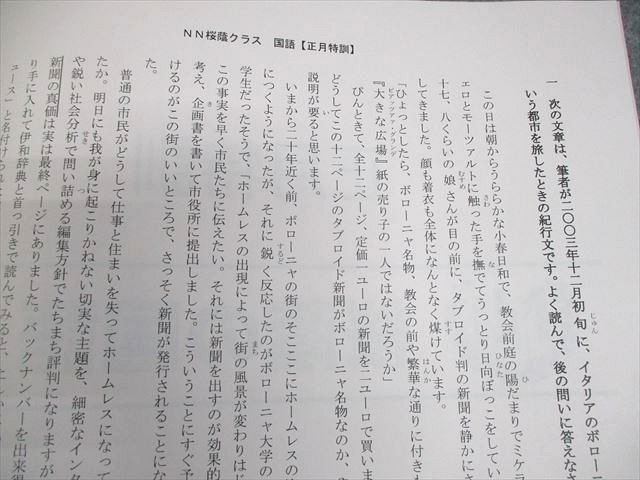 NN桜蔭クラス 国語【正月特訓】
一 次の文章は、筆者が二〇〇三年十二月初旬に、イタリアのボロー
いう都市を旅したときの紀行文です。よく読んで、後の問いに答えなさ
この日は朝からうららかな小春日和で、教会前庭の陽だまりでミケラ
ェロとモーツァルトに触った手を撫でてうっとり日向ぼっこをしてい
十七、八くらいの娘さんが目の前に、タブロイド判の新聞を静かにさ
してきました。顔も着衣も全体になんとなく煤けています。
「ひょっとしたら、ボローニャ名物、教会の前や繁華な通りに付きも
『大きな広場』紙の売り子の一人ではないだろうか」
ぴんときて、全十二ページ、定価一ユーロの新聞を二ユーロで買いま
どうしてこの十二ページのタブロイド新聞がボローニャ名物なのか、
説明が要ると思います。
いまから二十年近く前、ボローニャの街のそこここにホームレスの
につくようになったが、それに鋭く反応したのがボローニャ大学の
学生だったそうで、「ホームレスの出現によって街の風景が変わりはじ
この事実を早く市民たちに伝えたい。それには新聞を出すのが効果的
考え、企画書を書いて市役所に提出しました。こういうことにすぐ予
けるのがこの街のいいところで、さっそく新聞が発行されることにな
た。
普通の市民がどうして仕事と住まいを失ってホームレスになって
たか。明日にも我が身に起こりかねない切実な主題を、細密なインタ
や鋭い社会分析で問い詰める編集方針でたちまち評判になりますが
新聞の真価は実は最終ページにありました。バックナンバーを出来
り手に入れて伊和辞典と首っ引きで読んでみると、
ュース」と名付け